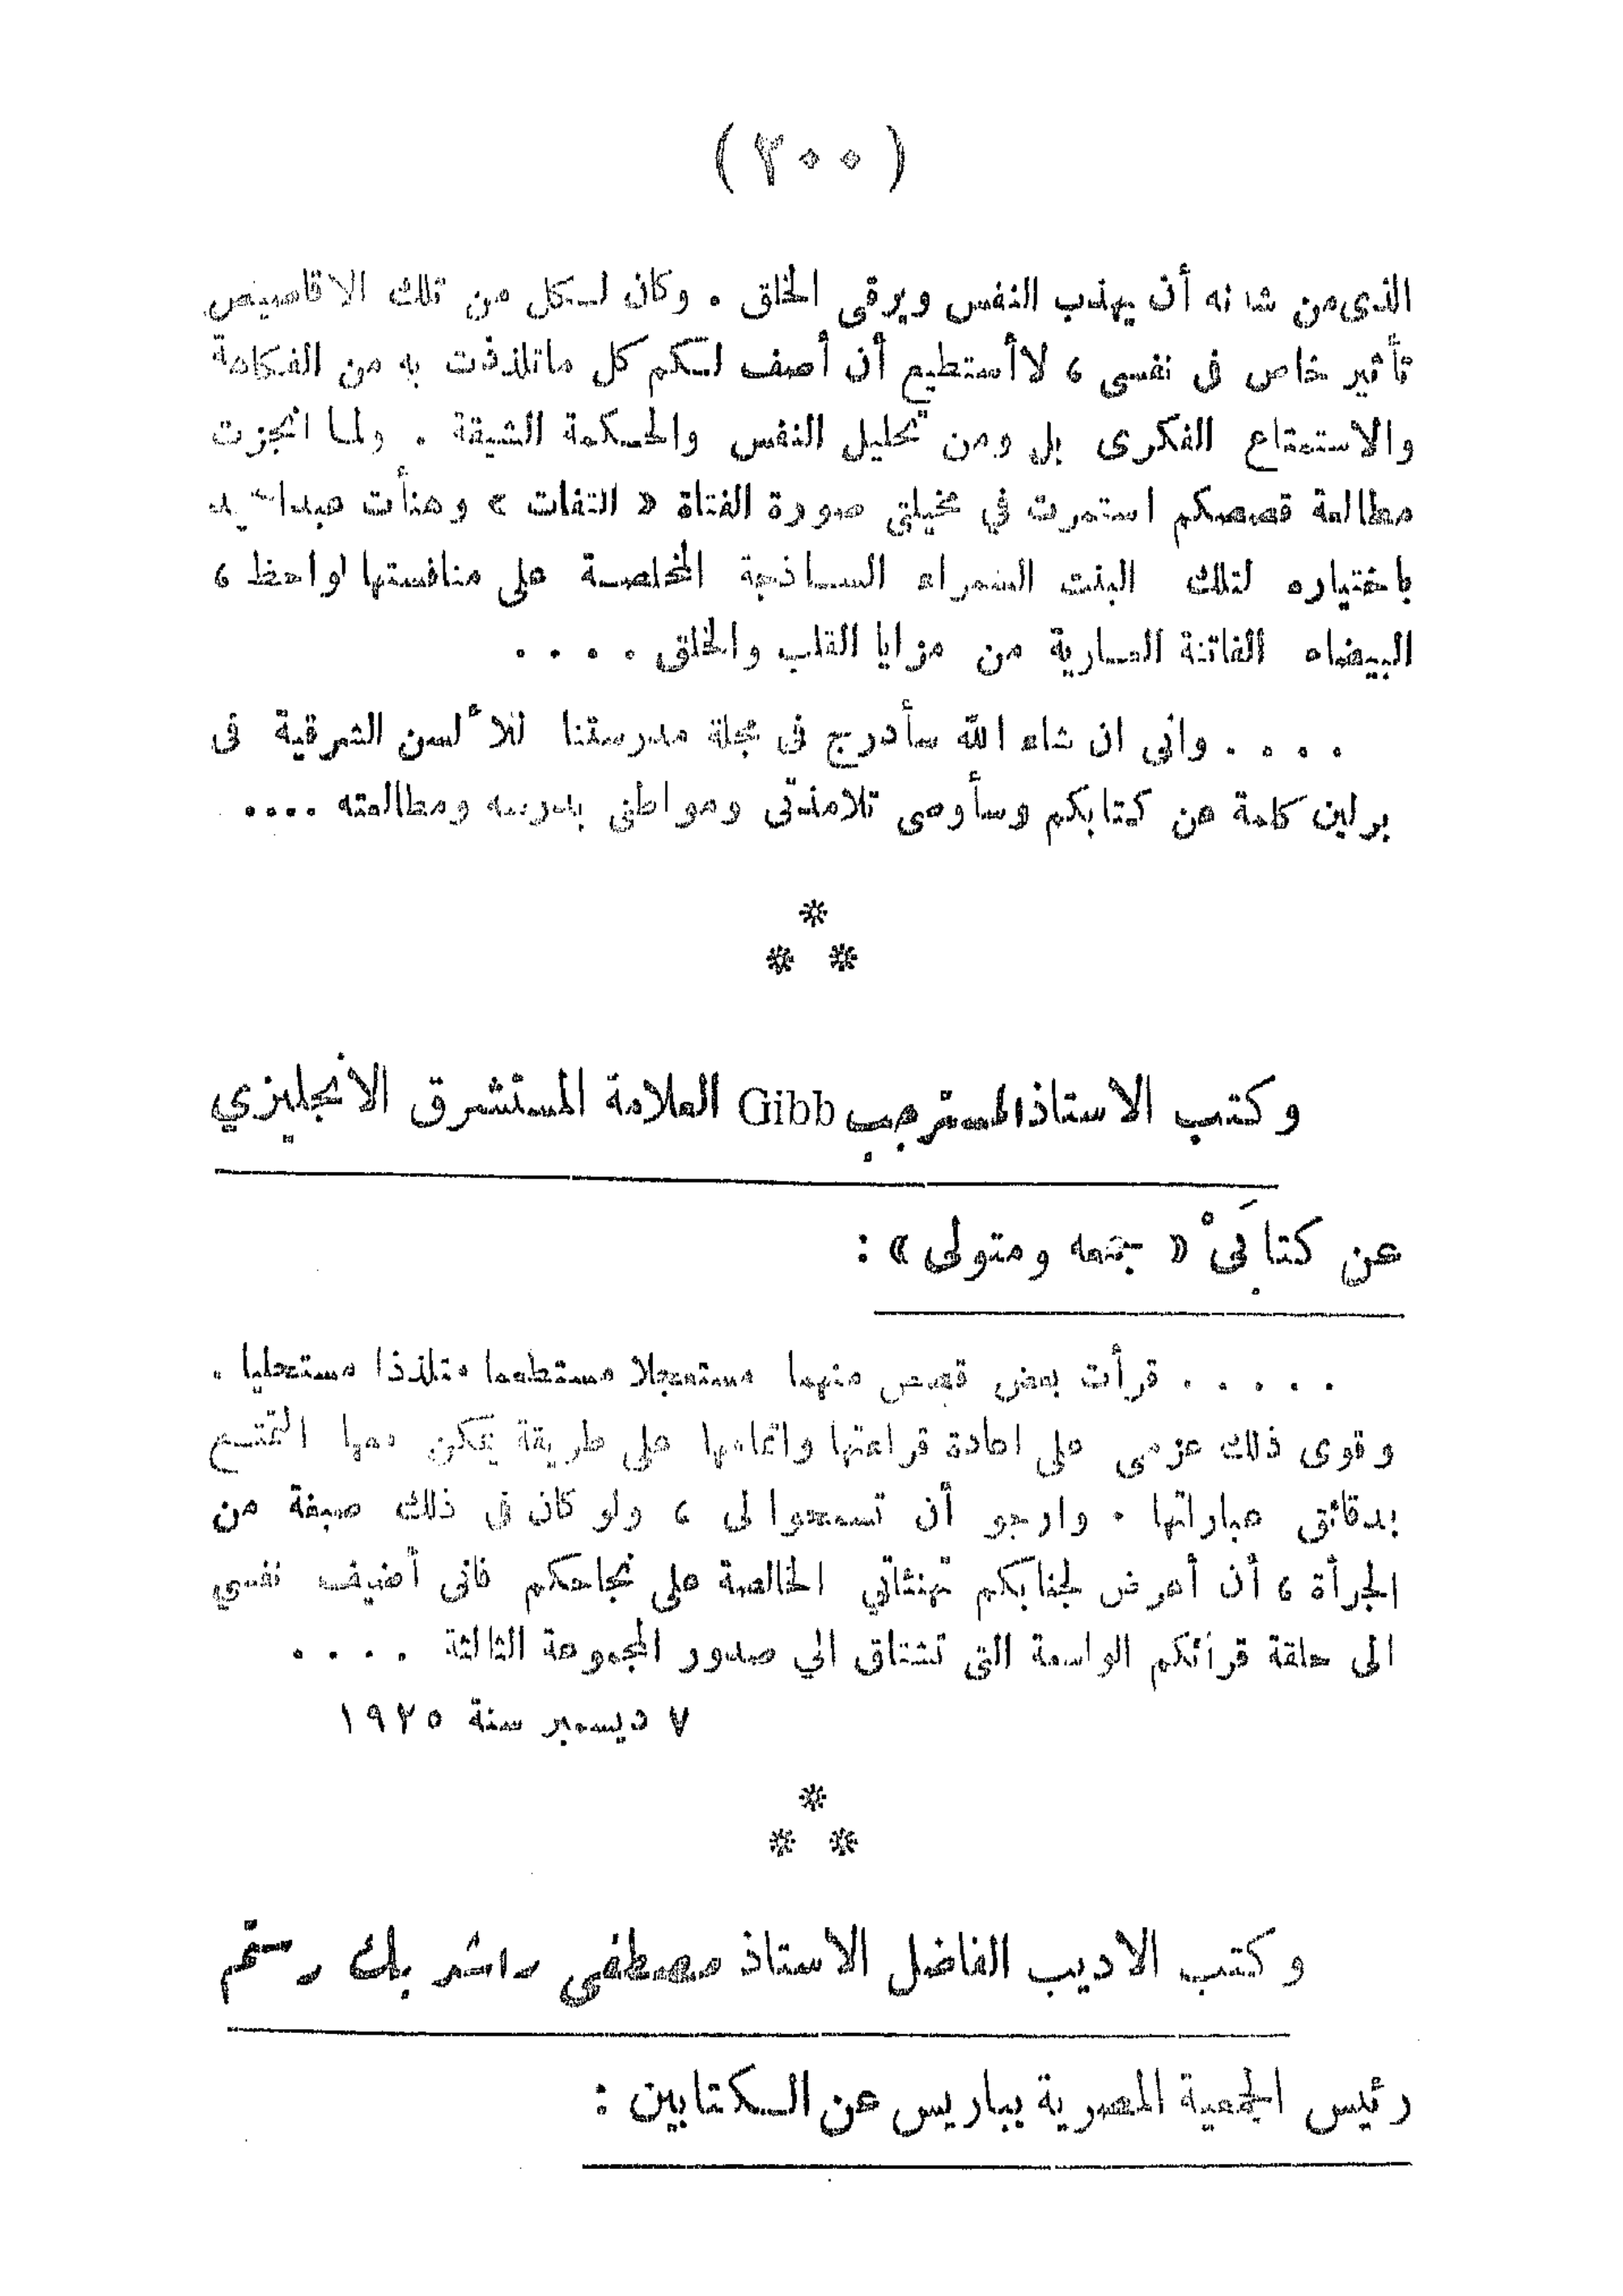 (٢٠٠)
الذى من شانه أن يهذب النفس ويرقى الخلق . وكان لكل من تلك الاقاصيص
تأثير خاص فى نفسى ، لا أستطيع أن أصف لكم كل ماتلذذت به من الفكاهة
والاستمتاع الفكرى بل ومن تحليل النفس والحكمة الشيقة . ولما انجزت
مطالعة قصصكم استمرت في مخيلتى صورة الفتاة « التفات » وهنأت
باختياره لتلك البنت السمراء الساذجة المخلصة على منافستها لواحظ ،
البيضاء الفاتنة العارية من مزايا القلب والخلق . . . .
. . . . وانى ان شاء الله سأدرج فى مجلة مدرستنا للألسن الشرقية فى
برلين كلمة عن كتابكم وسأوصى تلامذتى ومواطنى بدرسه ومطالعته ....
*
* *
وكتب الاستاذ المستر جب Gibb العلامة المستشرق الانجليزي
عن كتابَىْ « جمعه ومتولى » :
. . . . . قرأت بعض قصص منهما مستعجلا مستطعما متلذذا مستحليا .
وقوى ذلك عزمى على اعادة قراءتها واتمامها على طريقة يمكن معها التمتع
بدقائق عباراتها . وارجو أن تسمحوا لى ، ولو كان فى ذلك صبغة من
الجرأة ، أن أعرض لجنابكم تهنئاتي الخالصة على نجاحكم فانى أضيف نفسي
الى حلقة قرائكم الواسعة التى تشتاق الي صدور المجموعة الثالثة . . . .
٧ ديسمبر سنة ١٩٢٥
*
* *
وكتب الاديب الفاضل الاستاذ مصطفى راشد بك رستم
رئيس الجمعية المصرية بباريس عن الكتابين :